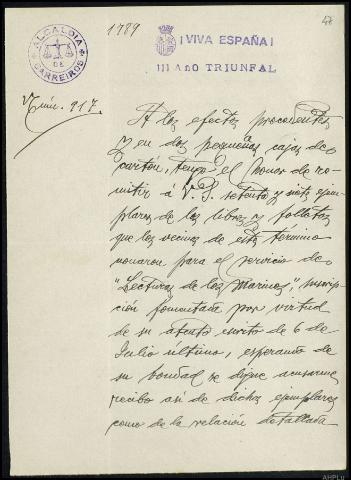 ALCALDIA
DE
CARREIROS
1789
¡VIVA ESPAÑA!
III AÑO TRIUNFAL
47
Núm. 917.
A los efectos procedentes
y en dos pequeñas cajas de
cartón, tengo el honor de re-
mitir á V. S. setenta y siete ejem-
plares de los libros y folletos
que los vecinos de este término
donaron para el servicio de
"Lecturas de los Marinos", suscrip-
ción fomentada por virtud
de su atento escrito de 6 de
Julio último, esperando de
su bondad se digne acusarme
recibo así de dichos ejemplares
como de la relación detallada
AHPLu